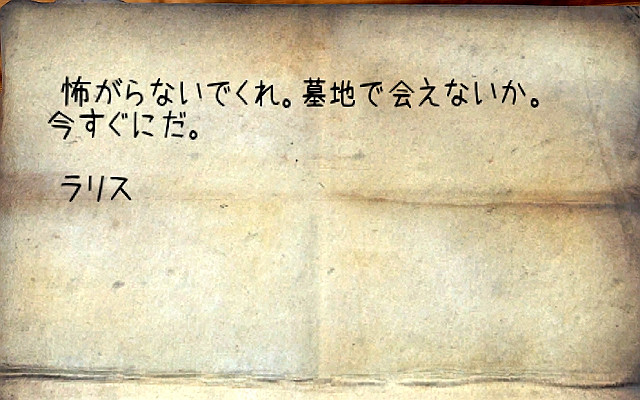 怖がらないでくれ。墓地で会えないか。
今すぐにだ。
ラリス